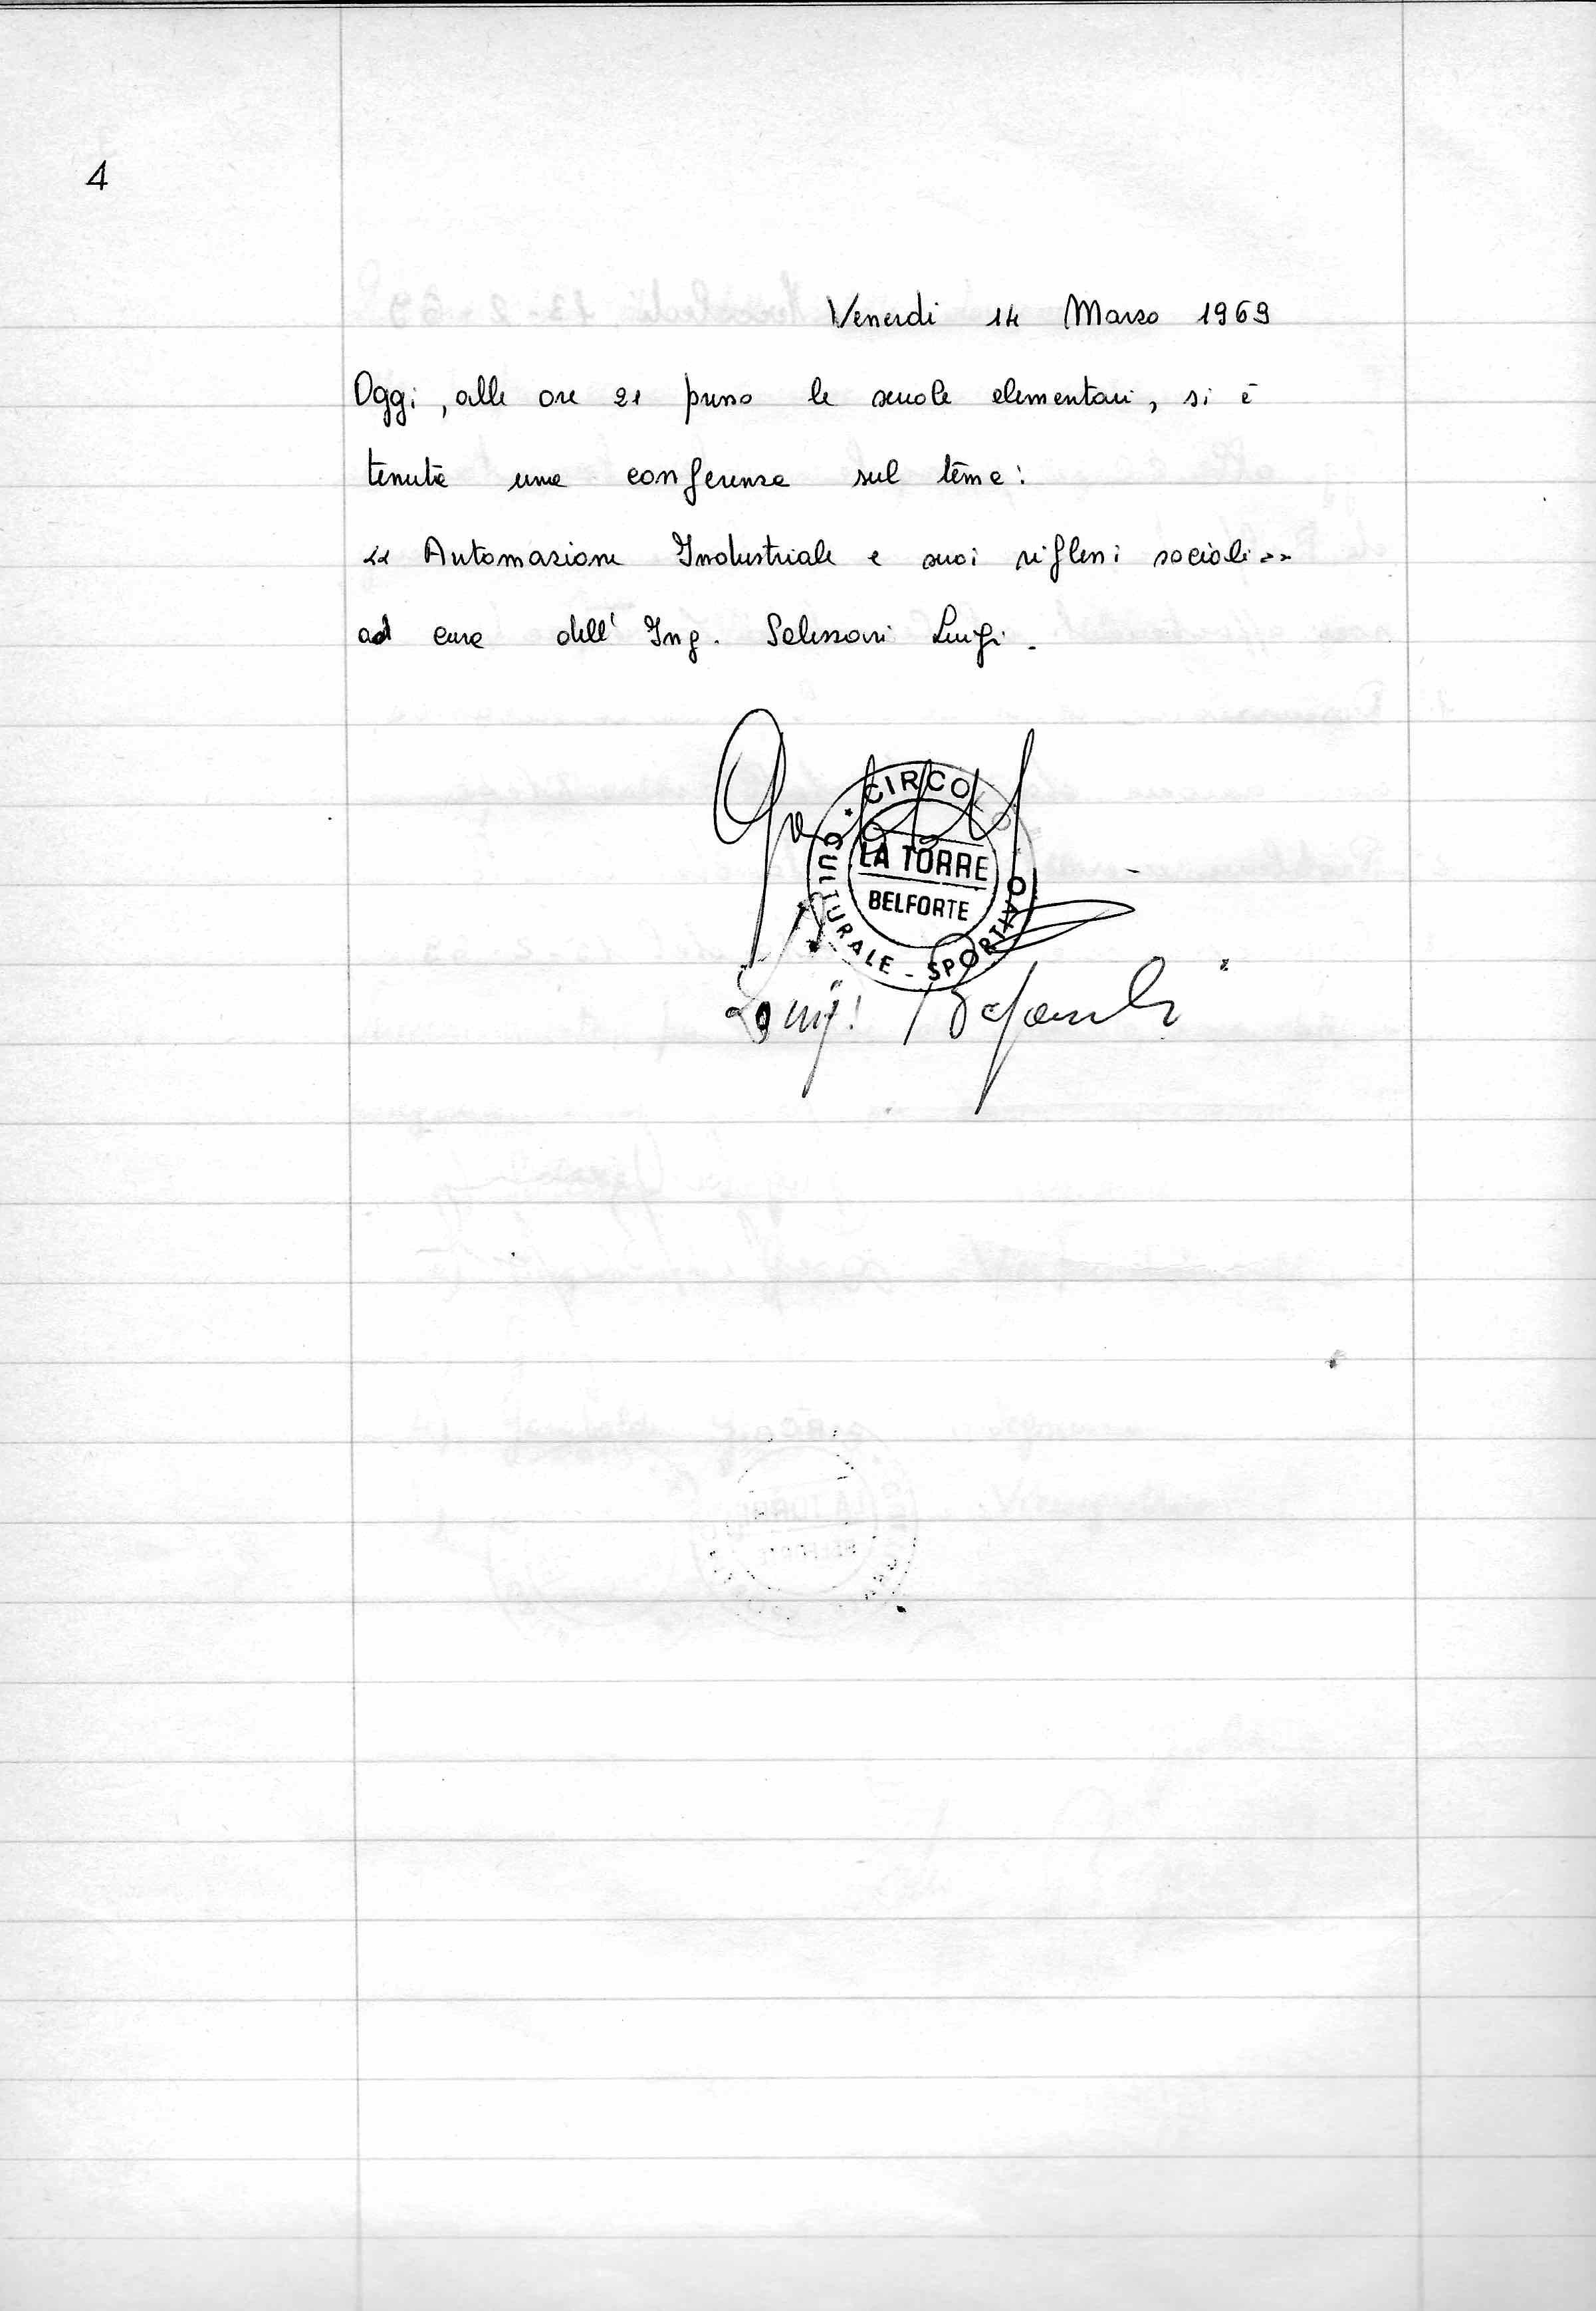 4
Venerdi 14 Marzo 1969
Oggi, alle ore 21 presso le scuole elementari, si è
tenuta una conferenza sul tema:
"Automazione Industriale e suoi riflessi sociali"
ad cura dell' Ing. Luigi.
CIRCOLO
CULTURALE - SPORTIVO
LA TORRE
BELFORTE
Luigi